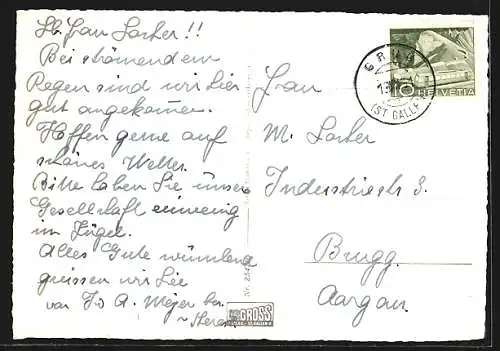 Lb. Frau Locher!!
Bei strömendem
Regen sind wir hier
gut angekommen.
Hoffen gerne auf
schönes Wetter.
Bitte haben Sie unsere
Gesellschaft ein wenig
im Zügel.
Alles Gute wünschend
grüssen wir Sie
von Fr. A. Meyer
Frau
M. Locher
Industriestr. 3.
Brugg.
Aargau.
GRUB
(ST. GALLEN)
10 HELVETIA
GROSS